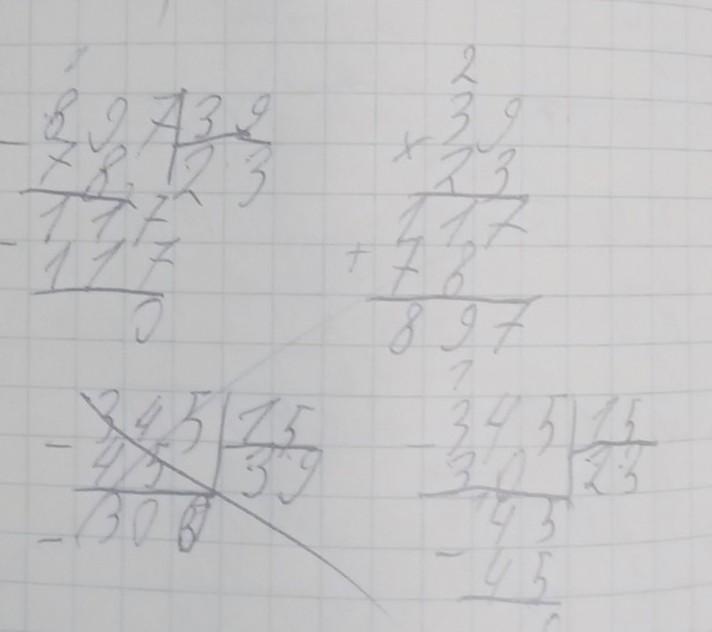 1
897 39
78 23
117
117
0
2
39
× 23
117
+ 78
897
345 15
45 39
30
1
345 15
30 23
45
45
0